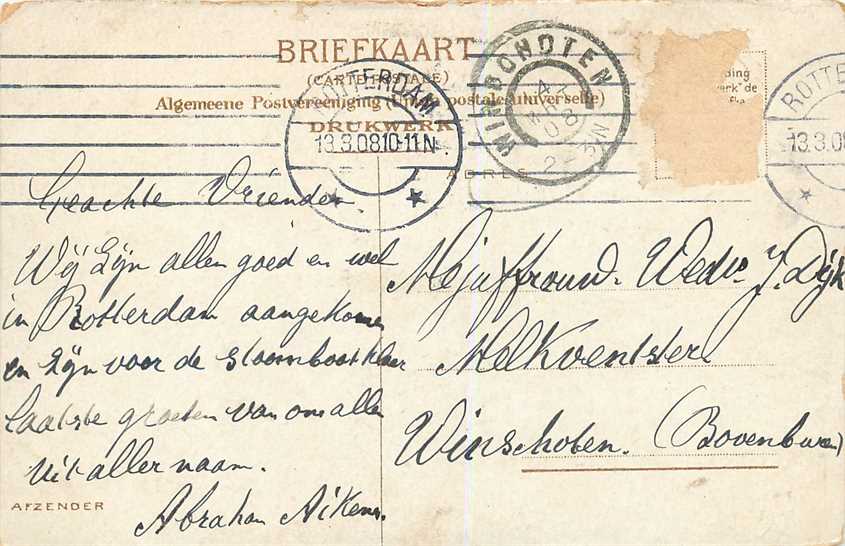 BRIEFKAART
(CARTE POSTALE)
Algemeene Postvereeniging (Union postale universelle)
DRUKWERK
ADRES
ROTTERDAM
13.3.08 10-11N.
4
MRT
08
ROTTE
13.3.08
Geachte Vrienden
Wij Zijn allen goed en wel
in Rotterdam aangekomen
en Zijn voor de stoomboot klaar
laatste groeten van ons allen
Uit aller naam.
Abraham Aikema.
AFZENDER
Mejuffrouw. Wedw J. Dijk
Melkventster.
Winschoten. (Bovenburen)